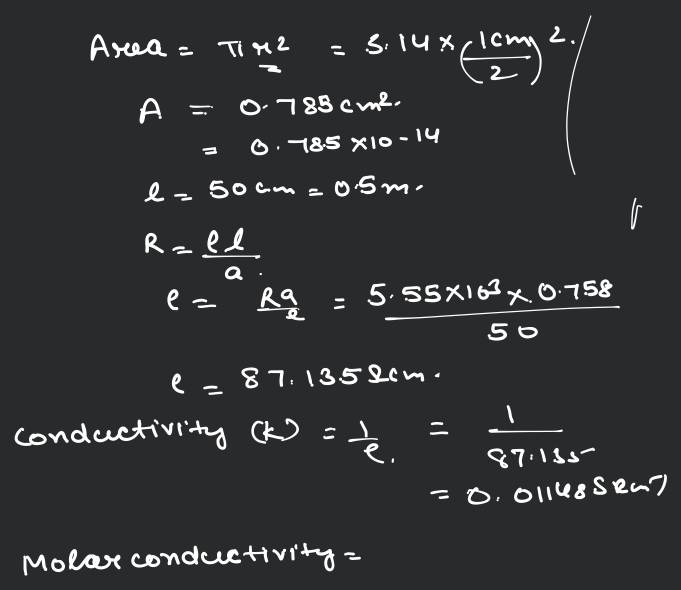 Area = πr2 = 3.14 × (1cm/2)2.
A = 0.785 cm2.
= 0.785 ×10-14
l = 50 cm = 0.5m.
R = ρl/a.
ρ = Ra/l = 5.55×103 × 0.758/50
ρ = 87.135Ωcm.
Conductivity (K) = 1/ρ. = 1/87.135
= 0.01148S
Molar conductivity =